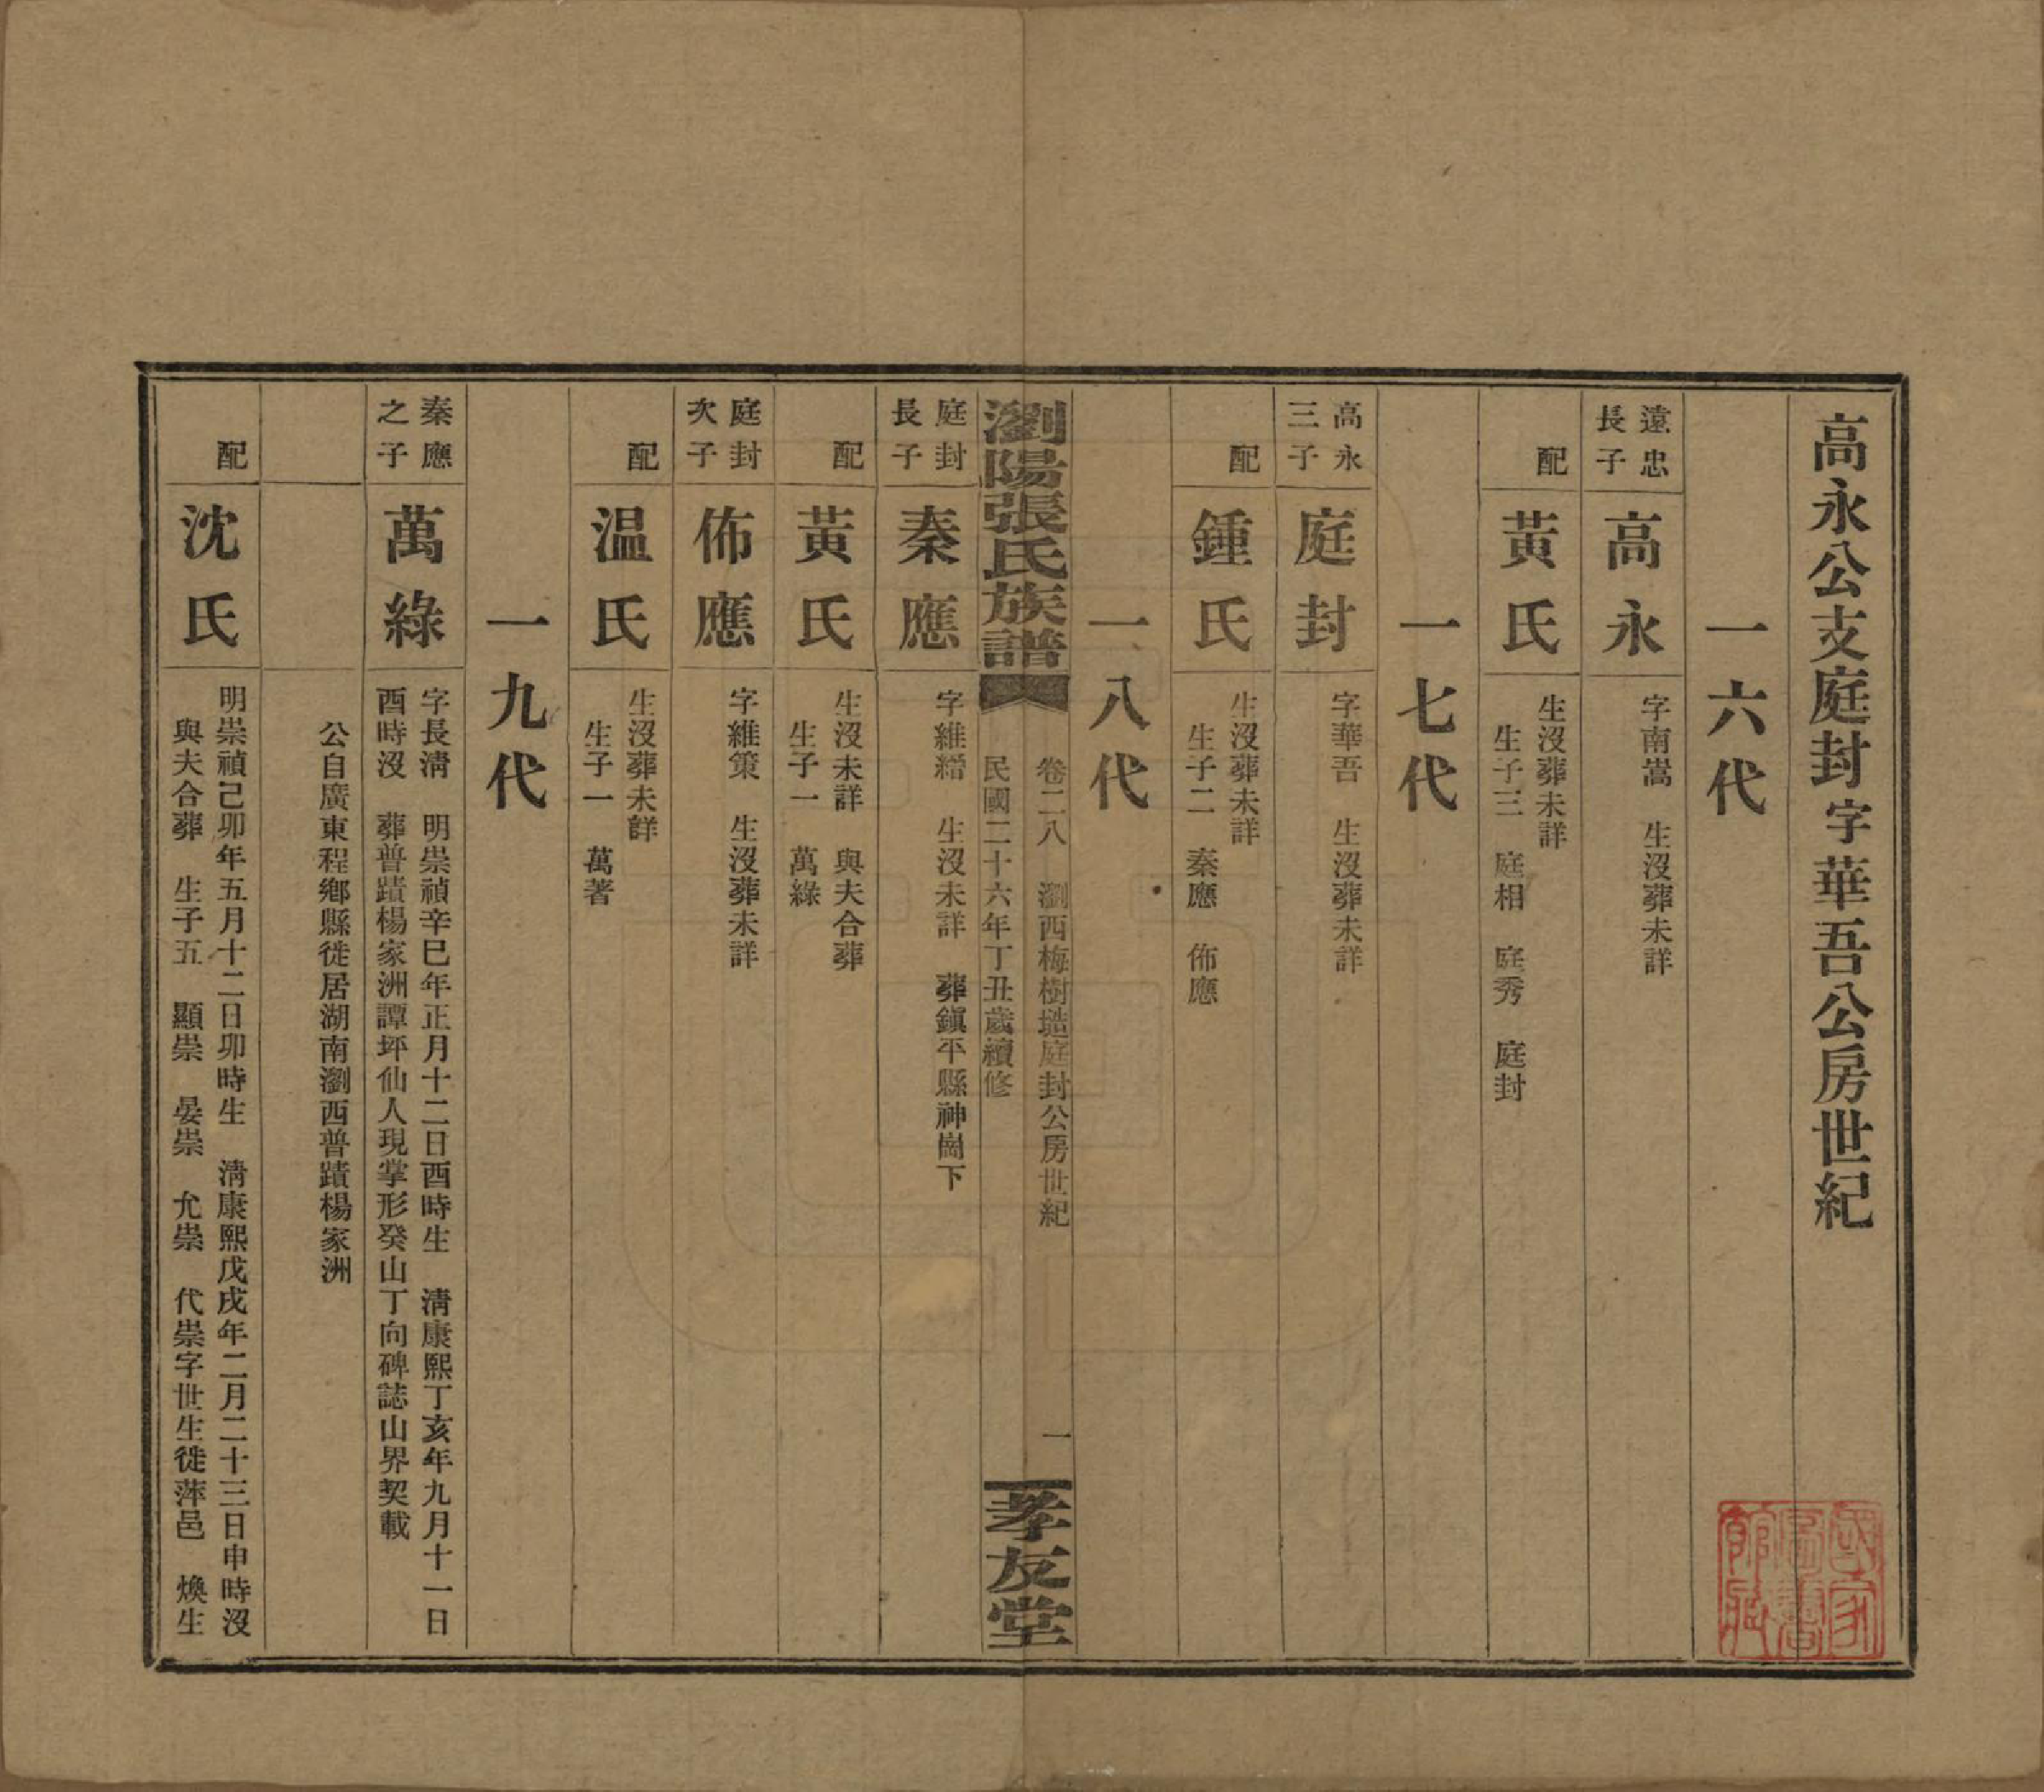 高永公支庭封字華吾公房世紀
一六代
遠忠
長子
高永
字南嵩　生沒葬未詳
配
黃氏
生沒葬未詳
生子三　庭相　庭秀　庭封
一七代
高永
三子
庭封
字華吾　生沒葬未詳
配
鍾氏
生沒葬未詳
生子二　秦應　佈應
一八代
瀏陽張氏族譜
卷二八　瀏西梅樹塅庭封公房世紀
民國二十六年丁丑歲續修
一
孝友堂
庭封
長子
秦應
字維縉　生沒未詳　葬鎮平縣神崗下
配
黃氏
生沒未詳　與夫合葬
生子一　萬綠
庭封
次子
佈應
字維策　生沒葬未詳
配
温氏
生沒葬未詳
生子一　萬著
一九代
秦應
之子
萬綠
字長清　明崇禎辛巳年正月十二日酉時生　清康熙丁亥年九月十一日
酉時沒　葬普蹟楊家洲譚坪仙人現掌形癸山丁向碑誌山界契載
公自廣東程鄉縣徙居湖南瀏西普蹟楊家洲
配
沈氏
明崇禎己卯年五月十二日卯時生　清康熙戊戌年二月二十三日申時沒
與夫合葬　生子五　顯崇　晏崇　允崇　代崇字世生徙萍邑　煥生
國家
圖書
館藏